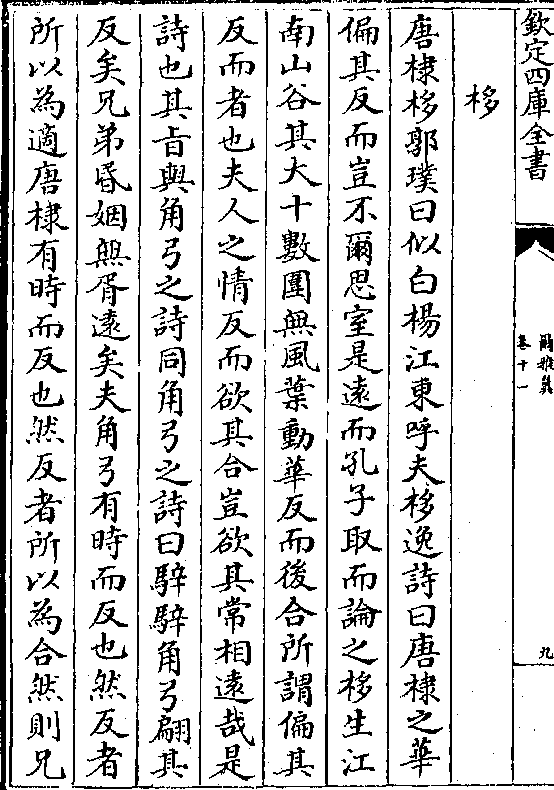 欽定四庫全書
爾雅翼
卷十一
九
栘
唐棣栘郭璞曰似白楊江東呼夫栘逸詩曰唐棣之華
偏其反而豈不爾思室是遠而孔子取而論之栘生江
南山谷其大十數圍無風葉動華反而後合所謂偏其
反而者也夫人之情反而欲其合豈欲其常相遠哉是
詩也其旨與角弓之詩同角弓之詩曰騂騂角弓翩其
反矣兄弟昏姻無胥遠矣夫角弓有時而反也然反者
所以為適唐棣有時而反也然反者所以為合然則兄